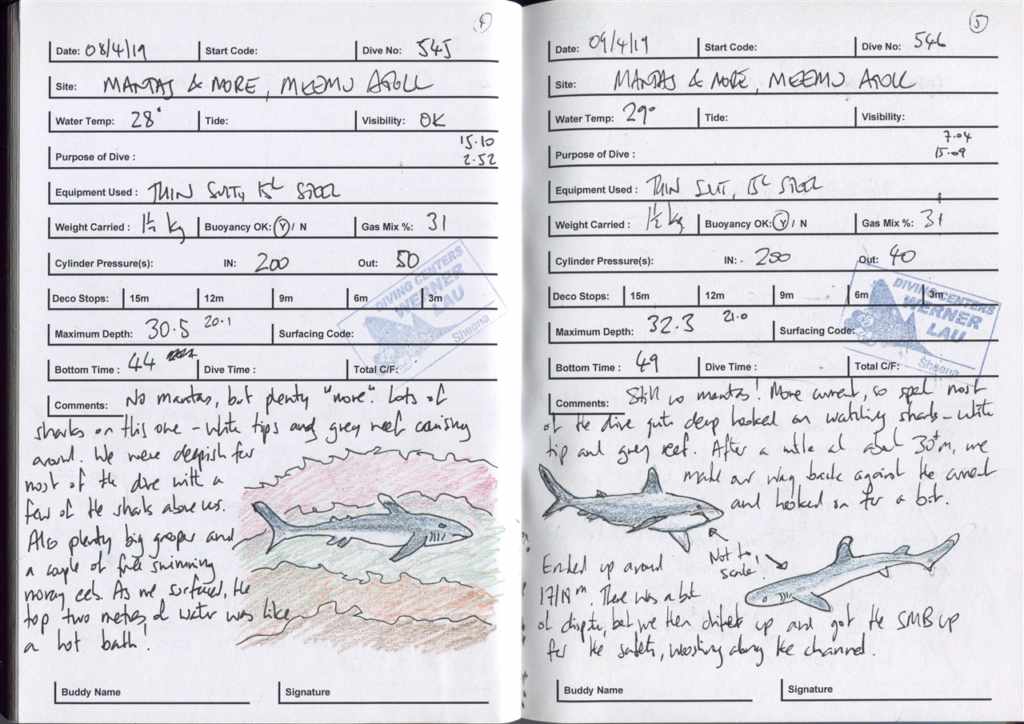 4
Date: 08/4/19 Start Code: Dive No: 545
Site: MANTAS & MORE, MEEMU ATOLL
Water Temp: 28° Tide: Visibility: OK
15.10
Purpose of Dive : 2.52
Equipment Used : THIN SUIT, 15L STEEL
Weight Carried : 1½ kg Buoyancy OK: Y / N Gas Mix %: 31
Cylinder Pressure(s): IN: 200 Out: 50
Deco Stops: 15m 12m 9m 6m 3m
Maximum Depth: 30.5 20.1 Surfacing Code:
Bottom Time : 44 Dive Time : Total C/F:
DIVING CENTERS
WERNER
LAU
Comments: No mantas, but plenty "more". Lots of
sharks on this one - white tips and grey reef cruising
around. We were deepish for
most of the dive with a
few of the sharks above us.
Also plenty big grouper and
a couple of free swimming
moray eels. As we surfaced, the
top two metres of water was like
a hot bath!
Buddy Name Signature
5
Date: 09/4/19 Start Code: Dive No: 546
Site: MANTAS & MORE, MEEMU ATOLL
Water Temp: 29° Tide: Visibility:
7.04
Purpose of Dive : 15.09
Equipment Used : THIN SUIT, 15L STEEL
Weight Carried : 1½ kg Buoyancy OK: Y / N Gas Mix %: 31
Cylinder Pressure(s): IN: 200 Out: 40
Deco Stops: 15m 12m 9m 6m 3m
Maximum Depth: 32.3 21.0 Surfacing Code:
Bottom Time : 49 Dive Time : Total C/F:
DIVING CENTERS
WERNER
LAU
Comments: Still no mantas! More current, so spent most
of the dive quite deep hooked on watching sharks - white
tip and grey reef. After a while at about 30+m, we
made our way back against the current
and hooked on for a bit.
Not to
scale.
Ended up around
17/18m. There was a bit
of dispute, but we then drifted up and got the SMB up
for the safety, whooshing along the channel.
Buddy Name Signature